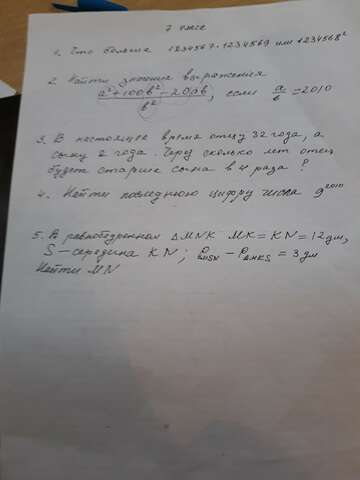 7 класс
1. Что больше 1234567·1234569 или 1234568²
2. Найти значение выражения
(a²+100b²-20ab)/b², если a/b=2010
3. В настоящее время отцу 32 года, а
сыну 2 года. Через сколько лет отец
будет старше сына в 4 раза?
4. Найти последнюю цифру числа 9²⁰¹⁰
5. В равнобедренном ΔMNK MK=KN=12дм,
S-середина KN; P_MSN - P_ΔMKS = 3дм
Найти MN